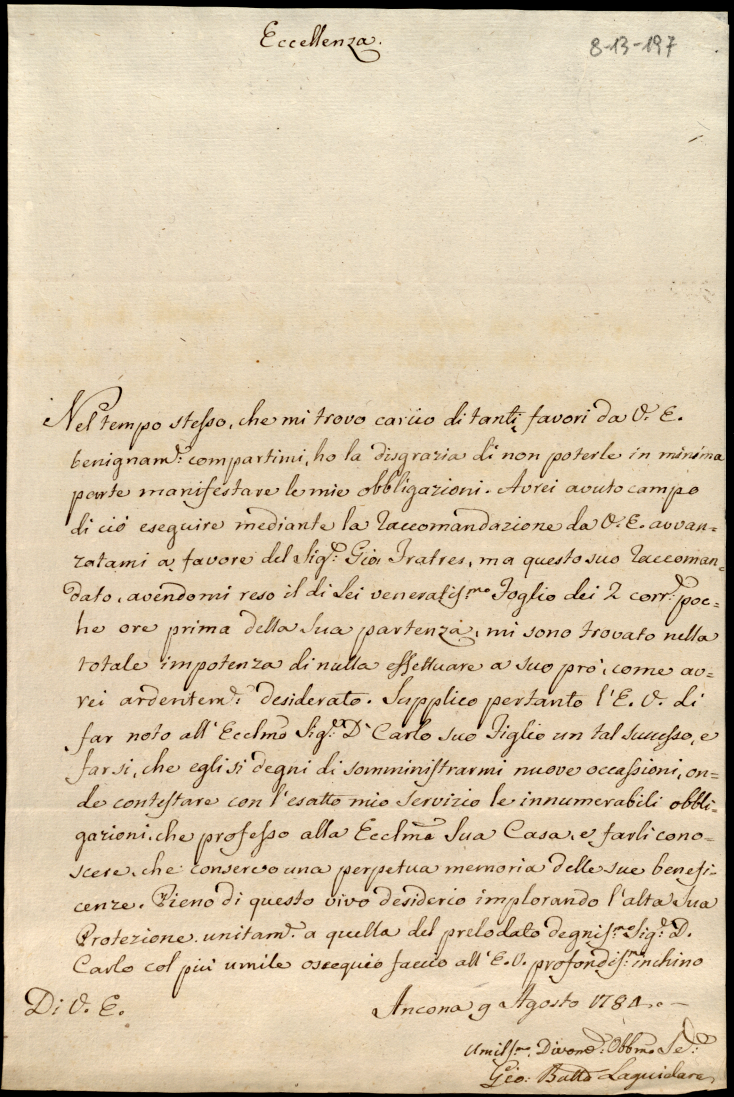 Eccellenza.
8-13-197
Nel tempo stesso, che mi trovo carico di tanti favori da V. E.
benignam.e compartimi, ho la disgrazia di non poterle in minima
parte manifestare le mie obbligazioni. Avrei avuto campo
di ciò eseguire mediante la Raccomandazione da V. E. avvan=
zatami a favore del Sig.r Gio: Fratres, ma questo suo Raccoman=
dato, avendomi reso il di Lei veneratis.mo Foglio dei 2 corr.e poc=
he ore prima della sua partenza, mi sono trovato nella
totale impotenza di nulla effettuare a suo prò, come av=
rei ardentem.e desiderato. Supplico pertanto l'E. V. di
far noto all'Ecclmo Sig.r Dn Carlo suo Figlio un tal successo, e
far si, che egli si degni di somministrarmi nuove occassioni, on=
de contestare con l'esatto mio servizio le innumerabili obbli=
gazioni, che professo alla Ecclma Sua Casa, e farli cono=
scere, che conservo una perpetua memoria delle sue benefi=
cenze. Pieno di questo vivo desiderio implorando l'alta Sua
Protezione unitam.e a quella del prelodato degnis.mo Sig.r D.
Carlo col più umile ossequio faccio all'E. V. profondis.mo inchino
Di V. E. Ancona 9 Agosto 1781
Umilis.mo Divot.mo Obbmo Se.re
Gio: Batta